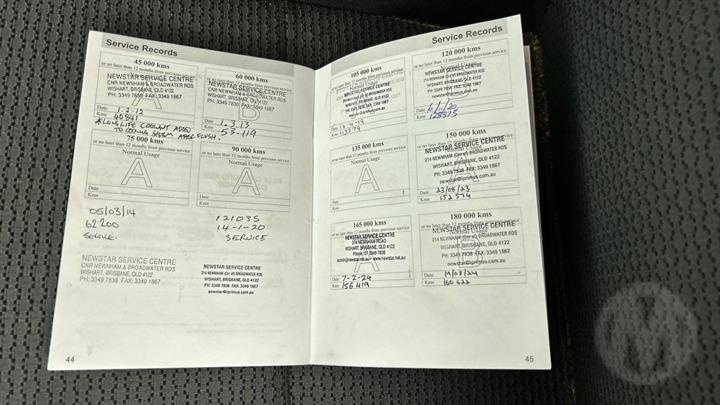 Service Records
45 000 kms
or no later than 12 months from previous service
NEWSTAR SERVICE CENTRE
CNR NEWNHAM & BROADWATER RDS
WISHART, BRISBANE, QLD 4122
PH: 3349 7838 FAX: 3349 1867
Date 1-2-13
Kms 40841
* LONG LIFE COOLANT ADDED
TO COOLING SYSTEM AFTER FLUSH.
60 000 kms
or no later than 12 months from previous service
NEWSTAR SERVICE CENTRE
CNR NEWNHAM & BROADWATER RDS
WISHART, BRISBANE, QLD 4122
PH: 3349 7838 FAX: 3349 1867
Date 1.3.13
Kms 53-119
75 000 kms
or no later than 12 months from previous service
Normal Usage
A
Date
Kms
90 000 kms
or no later than 12 months from previous service
Normal Usage
A
Date
Kms
05/03/14
62200
SERVICE
121035
14-1-20
SERVICE
NEWSTAR SERVICE CENTRE
CNR NEWNHAM & BROADWATER RDS
WISHART, BRISBANE, QLD 4122
PH: 3349 7838 FAX: 3349 1867
NEWSTAR SERVICE CENTRE
214 NEWNHAM (Cnr of) BROADWATER RDS
WISHART, BRISBANE, QLD 4122
PH: 3349 7838 FAX: 3349 1867
newstar@iprimus.com.au
44
Service Records
105 000 kms
or no later than 12 months from previous service
NEWSTAR SERVICE CENTRE
Date
Kms
120 000 kms
or no later than 12 months from previous service
NEWSTAR SERVICE CENTRE
Date 6/1/20
Kms 128375
135 000 kms
or no later than 12 months from previous service
Normal Usage
A
Date
Kms
150 000 kms
or no later than 12 months from previous service
NEWSTAR SERVICE CENTRE
214 NEWNHAM (Cnr of) BROADWATER RDS
WISHART, BRISBANE, QLD 4122
PH: 3349 7838 FAX: 3349 1867
newstar@iprimus.com.au
Date 23/05/23
Kms 152574
165 000 kms
or no later than 12 months from previous service
NEWSTAR SERVICE CENTRE
214 NEWNHAM ROAD
WISHART, BRISBANE QLD 4122
Phone: 07 3349 7838
Date 7-2-24
Kms 156419
180 000 kms
or no later than 12 months from previous service
NEWSTAR SERVICE CENTRE
214 NEWNHAM (Cnr of) BROADWATER RDS
WISHART, BRISBANE, QLD 4122
PH: 3349 7838 FAX: 3349 1867
newstar@iprimus.com.au
Date 19/08/24
Kms 160622
45